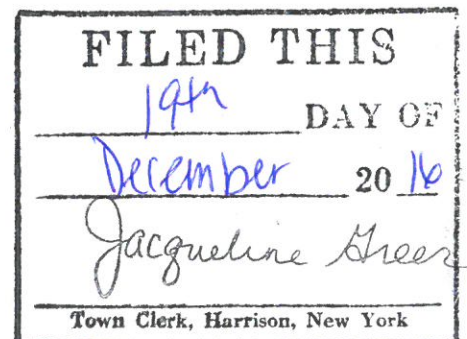 FILED THIS
19th DAY OF
December 20 16
Jacqueline Greer
Town Clerk, Harrison, New York